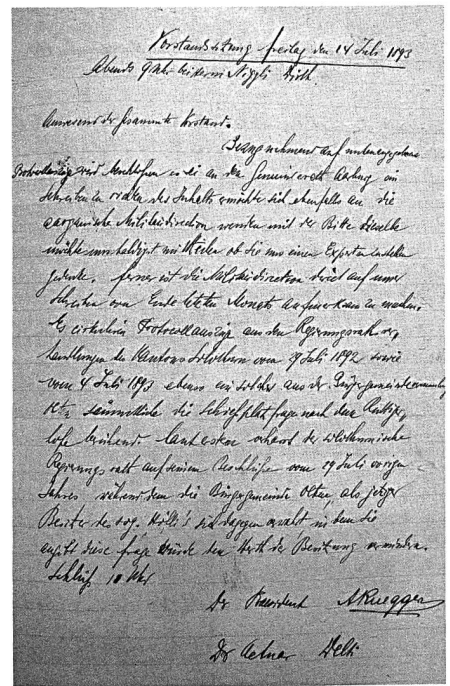 Vorstandssitzung Freitag den 14 Juli 1893
Abends 9 Uhr bei Herrn Niggli Wirth.
Anwesend der gesammte Vorstand.
Bezug nehmend auf
wird beschlossen es sei an den Gemeinderath Aarburg ein
Schreiben zu richten des Inhalts er möchte sich ebenfalls an die
aargauische Militärdirection wenden mit der Bitte dieselbe
möchte uns baldigst mittheilen ob sie nun einen Experten bestellen
gedenke. Ferner sei die Militärdirection direct auf unser
Schreiben von Ende letzten Monats aufmerksam zu machen.
Es cirkuliren Protocollauszüge aus den Regierungsrathsver-
handlungen des Kantons Solothurn vom 29 Juli 1892 sowie
vom 4 Juli 1893 ebenso ein solcher aus der Bürgergemeindeversammlung
sämmtliche die Schießplatzfrage nach dem
berührend laut ersten beharrt der solothurnische
Regierungsrath auf seinem Beschluße vom 29 Juli vorigen
Jahres währenddem die Bürgergemeinde Olten, als jetziger
Besitzer des sog. sich dagegen indem sie
angibt diese Frage würde den Werth der Besitzung vermindern.
Schluß 10 Uhr
Der Praesident A Ruegger
Der Actuar